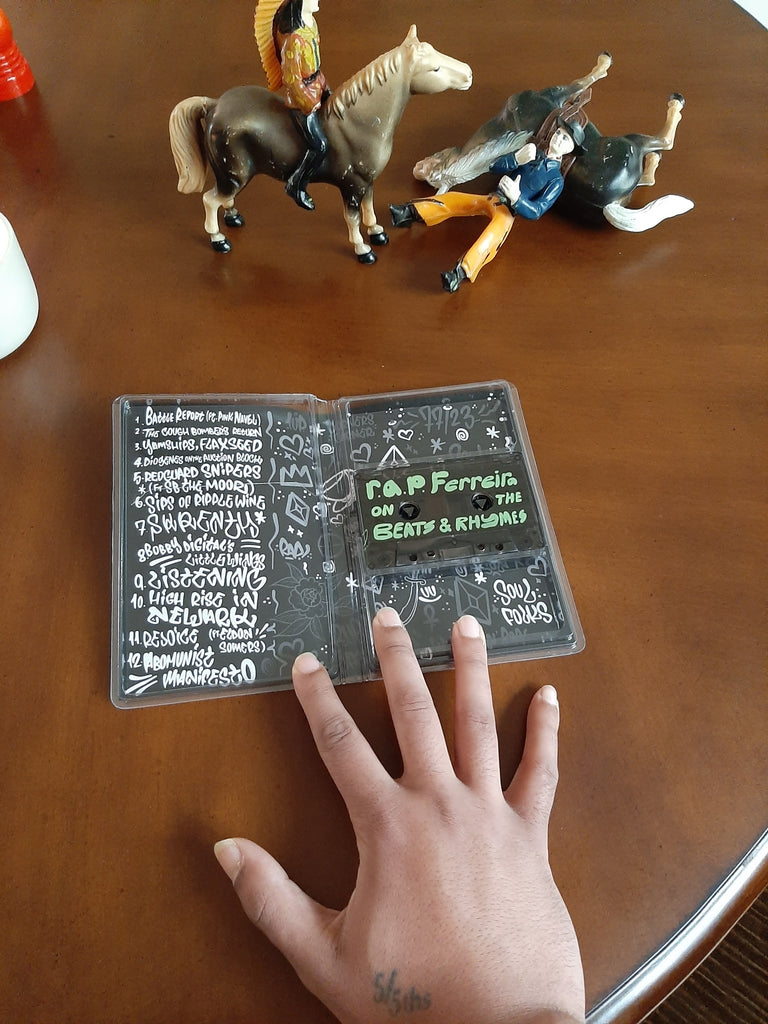 1. BATTLE REPORT (FT. PINK NAVEL)
2. THE COUGH BOMBER'S RETURN
3. YAMSHIPS, FLAXSEED
4. DIOGENES ON THE AUCTION BLOCK
5. REDGUARD SNIPERS
* (FT SB THE MOOR)
6. SIPS OF RIPPLE WINE
7
8 BOBBY DIGITAL'S
LITTLE WINGS
9. LISTENING
10. HIGH RISE IN
NEWARK
11. REJOICE (FT ELDON
SOMERS)
12. ABOMUNIST
MANIFESTO
77/23
r.a.p. Ferreira
ON THE
BEATS & RHYMES
SOUL
FOLKS
5/5ths